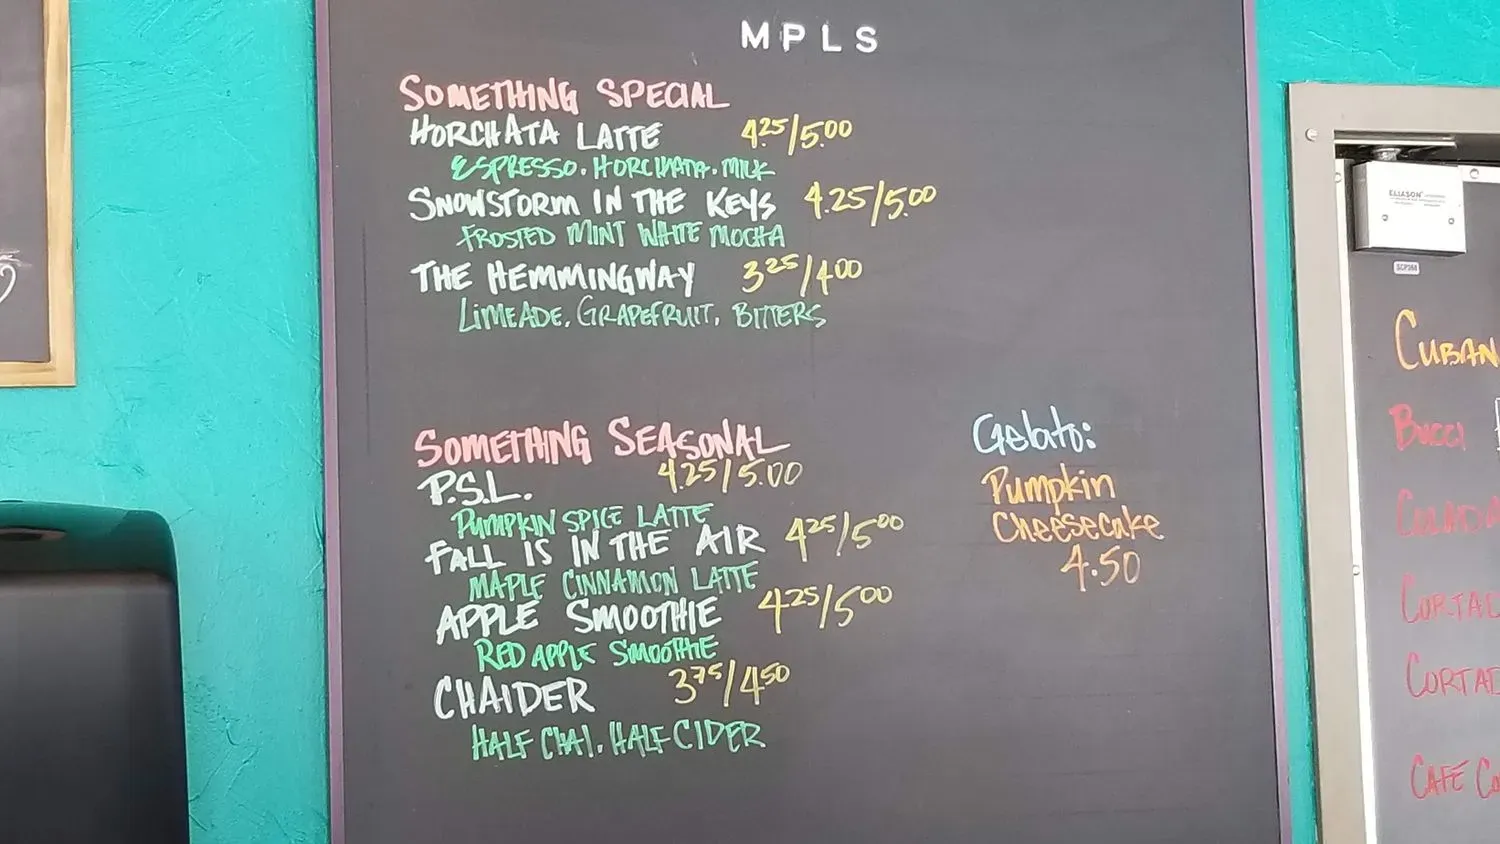 MPLS
SOMETHING SPECIAL
HORCHATA LATTE 4.25/5.00
ESPRESSO. HORCHATA. MILK
SNOWSTORM IN THE KEYS 4.25/5.00
FROSTED MINT WHITE MOCHA
THE HEMMINGWAY 3 25/4 00
LIMEADE. GRAPEFRUIT. BITTERS
SOMETHING SEASONAL
P.S.L. 4.25/5.00
PUMPKIN SPICE LATTE
FALL IS IN THE AIR 4 25/5 00
MAPLE CINNAMON LATTE
APPLE SMOOTHIE 4 25/5 00
RED APPLE SMOOTHIE
CHAIDER 3 75/4 50
HALF CHAI. HALF CIDER
Gelato:
Pumpkin
Cheesecake
4.50
ELIASON
SCP398
CUBAN
BUCCI
CORTAD
CAFE